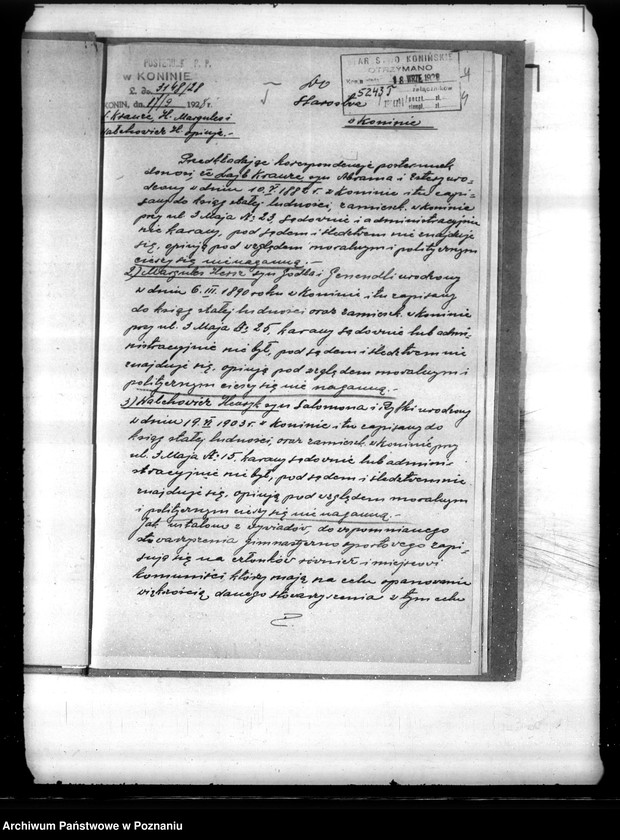 POSTERUNEK P. P.
W KONINIE
L. dz. 3148/28
KONIN, da. 17/9 1928 r.
Krauze, H. Margules i
Walchowicz H. opinje.-
Do
Starostwa
w Koninie
STAROSTWO KONIŃSKIE
OTRZYMANO
18 WRZE. 1928
5243
załączników
Przedkładając korespondencję posterunek
donosi, że Lajb Krauze syn Abrama i uro-
dzony w dniu 10.V.188 r. w Koninie i tu zapi-
sany do ksiąg stałej ludności, zamieszk. w Koninie
przy ul. 3 Maja № 23, sądownie i administracyjnie
nie karany, pod sądem i śledztwem nie znajduje
się, opinją pod względem moralnym i politycznym
cieszy się nienaganną.-
2) Margules Hersz syn Godla i Genendli urodzony
w dniu 6.III.1890 roku w Koninie, i tu zapisany
do ksiąg stałej ludności oraz zamieszk. w Koninie
przy ul. 3 Maja № 25, karany sądownie lub admi-
nistracyjnie nie był, pod sądem i śledztwem nie
znajduje się, opinją pod względem moralnym i
politycznym cieszy się nie naganną.-
3) Walchowicz Henryk syn Salomona i Rylki urodzony
w dniu 19.VI.1903 r. w Koninie i tu zapisany do
ksiąg stałej ludności, oraz zamieszk. w Koninie przy
ul. 3 Maja № 15, karany sądownie lub admini-
stracyjnie nie był, pod sądem i śledztwem nie
znajduje się, opinją pod względem moralnym
i politycznym cieszy się nie naganną.-
Jak ustalono z wywiadów, do wspomnianego
stowarzyszenia gimnastyczno sportowego zapi-
sują się na członków również i miejscowi
komuniści, którzy mają na celu opanowanie
większością danego stowarzyszenia w tym celu
2
Archiwum Państwowe w Poznaniu